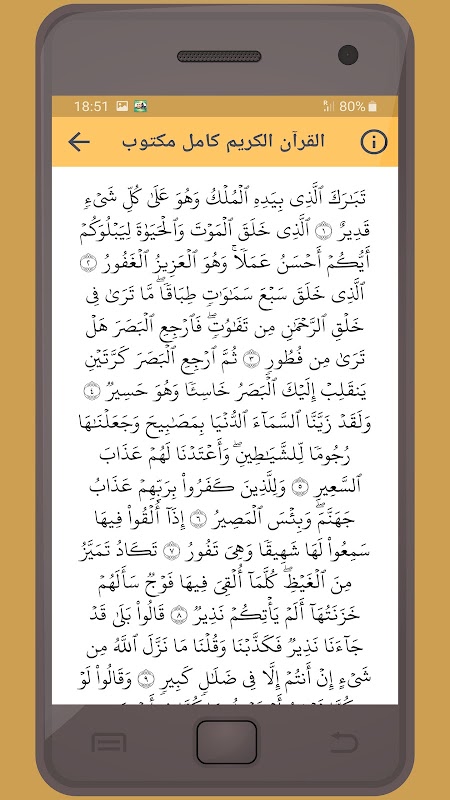 18:51
80%
القرآن الكريم كامل مكتوب
تَبَٰرَكَ ٱلَّذِي بِيَدِهِ ٱلۡمُلۡكُ وَهُوَ عَلَىٰ كُلِّ شَيۡءٖ
قَدِيرٌ ١ ٱلَّذِي خَلَقَ ٱلۡمَوۡتَ وَٱلۡحَيَوٰةَ لِيَبۡلُوَكُمۡ
أَيُّكُمۡ أَحۡسَنُ عَمَلٗاۚ وَهُوَ ٱلۡعَزِيزُ ٱلۡغَفُورُ ٢
ٱلَّذِي خَلَقَ سَبۡعَ سَمَٰوَٰتٖ طِبَاقٗاۖ مَّا تَرَىٰ فِي
خَلۡقِ ٱلرَّحۡمَٰنِ مِن تَفَٰوُتٖۖ فَٱرۡجِعِ ٱلۡبَصَرَ هَلۡ
تَرَىٰ مِن فُطُورٖ ٣ ثُمَّ ٱرۡجِعِ ٱلۡبَصَرَ كَرَّتَيۡنِ
يَنقَلِبۡ إِلَيۡكَ ٱلۡبَصَرُ خَاسِئٗا وَهُوَ حَسِيرٞ ٤
وَلَقَدۡ زَيَّنَّا ٱلسَّمَآءَ ٱلدُّنۡيَا بِمَصَٰبِيحَ وَجَعَلۡنَٰهَا
رُجُومٗا لِّلشَّيَٰطِينِۖ وَأَعۡتَدۡنَا لَهُمۡ عَذَابَ
ٱلسَّعِيرِ ٥ وَلِلَّذِينَ كَفَرُواْ بِرَبِّهِمۡ عَذَابُ
جَهَنَّمَۖ وَبِئۡسَ ٱلۡمَصِيرُ ٦ إِذَآ أُلۡقُواْ فِيهَا
سَمِعُواْ لَهَا شَهِيقٗا وَهِيَ تَفُورُ ٧ تَكَادُ تَمَيَّزُ
مِنَ ٱلۡغَيۡظِۖ كُلَّمَآ أُلۡقِيَ فِيهَا فَوۡجٞ سَأَلَهُمۡ
خَزَنَتُهَآ أَلَمۡ يَأۡتِكُمۡ نَذِيرٞ ٨ قَالُواْ بَلَىٰ قَدۡ
جَآءَنَا نَذِيرٞ فَكَذَّبۡنَا وَقُلۡنَا مَا نَزَّلَ ٱللَّهُ مِن
شَيۡءٍ إِنۡ أَنتُمۡ إِلَّا فِي ضَلَٰلٖ كَبِيرٖ ٩ وَقَالُواْ لَوۡ